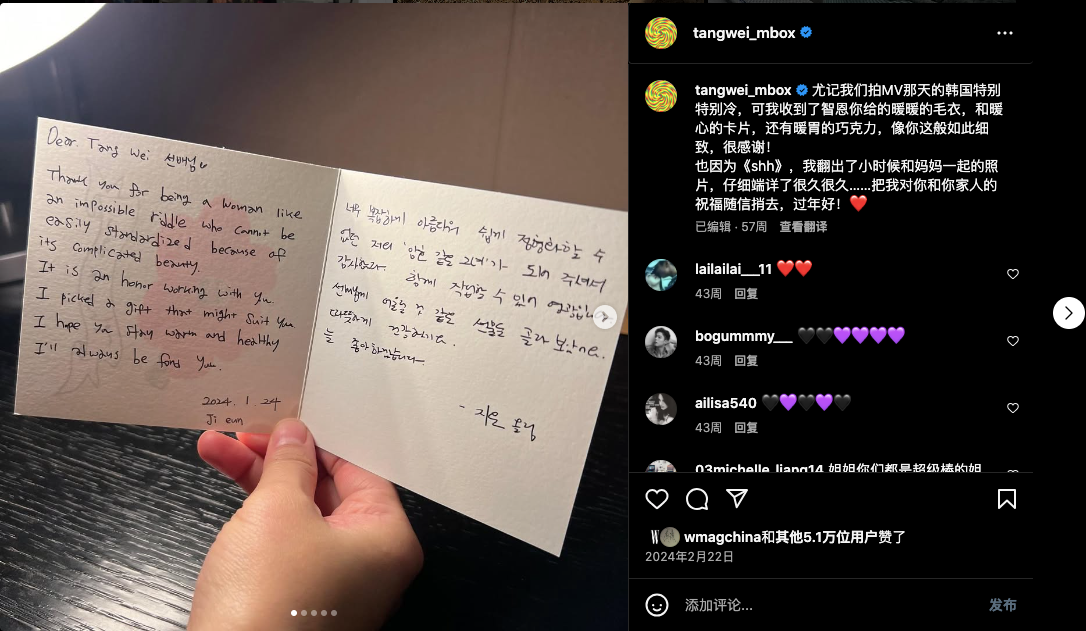 Dear. Tang Wei 선배님
Thank you for being a woman like
an impossible riddle who cannot be
easily standardized because of
its complicated beauty.
It is an honor working with you
I picked a gift that might suit you
I hope you stay warm and healthy
I'll always be fond you.
2024. 1. 24
Ji eun
너무 복잡하게 아름다워 쉽게 정형화할 수
없는 저의 '않은 같은 그녀'가 되어 주셔서
감사합니다 함께 작업할 수 있어 영광입니다
선배님께 어울릴 것 같은 선물을 골라 보았어요.
따뜻하게 건강하세요.
늘 좋아하겠습니다
- 지은 올림
tangwei_mbox
tangwei_mbox 尤记我们拍MV那天的韩国特别
特别冷，可我收到了智恩你给的暖暖的毛衣，和暖
心的卡片，还有暖胃的巧克力，像你这般如此细
致，很感谢！
也因为《shh》，我翻出了小时候和妈妈一起的照
片，仔细端详了很久很久......把我对你和你家人的
祝福随信捎去，过年好！❤️
已编辑 · 57周 查看翻译
lailailai__11 ❤️❤️
43周 回复
bogummmy__ 🖤🖤💜💜💜💜
43周 回复
ailisa540 🖤💜🖤💜🖤
43周 回复
03michelle_liang14 姐姐你们都是超级棒的姐
wmagchina和其他5.1万位用户赞了
2024年2月22日
添加评论...
发布